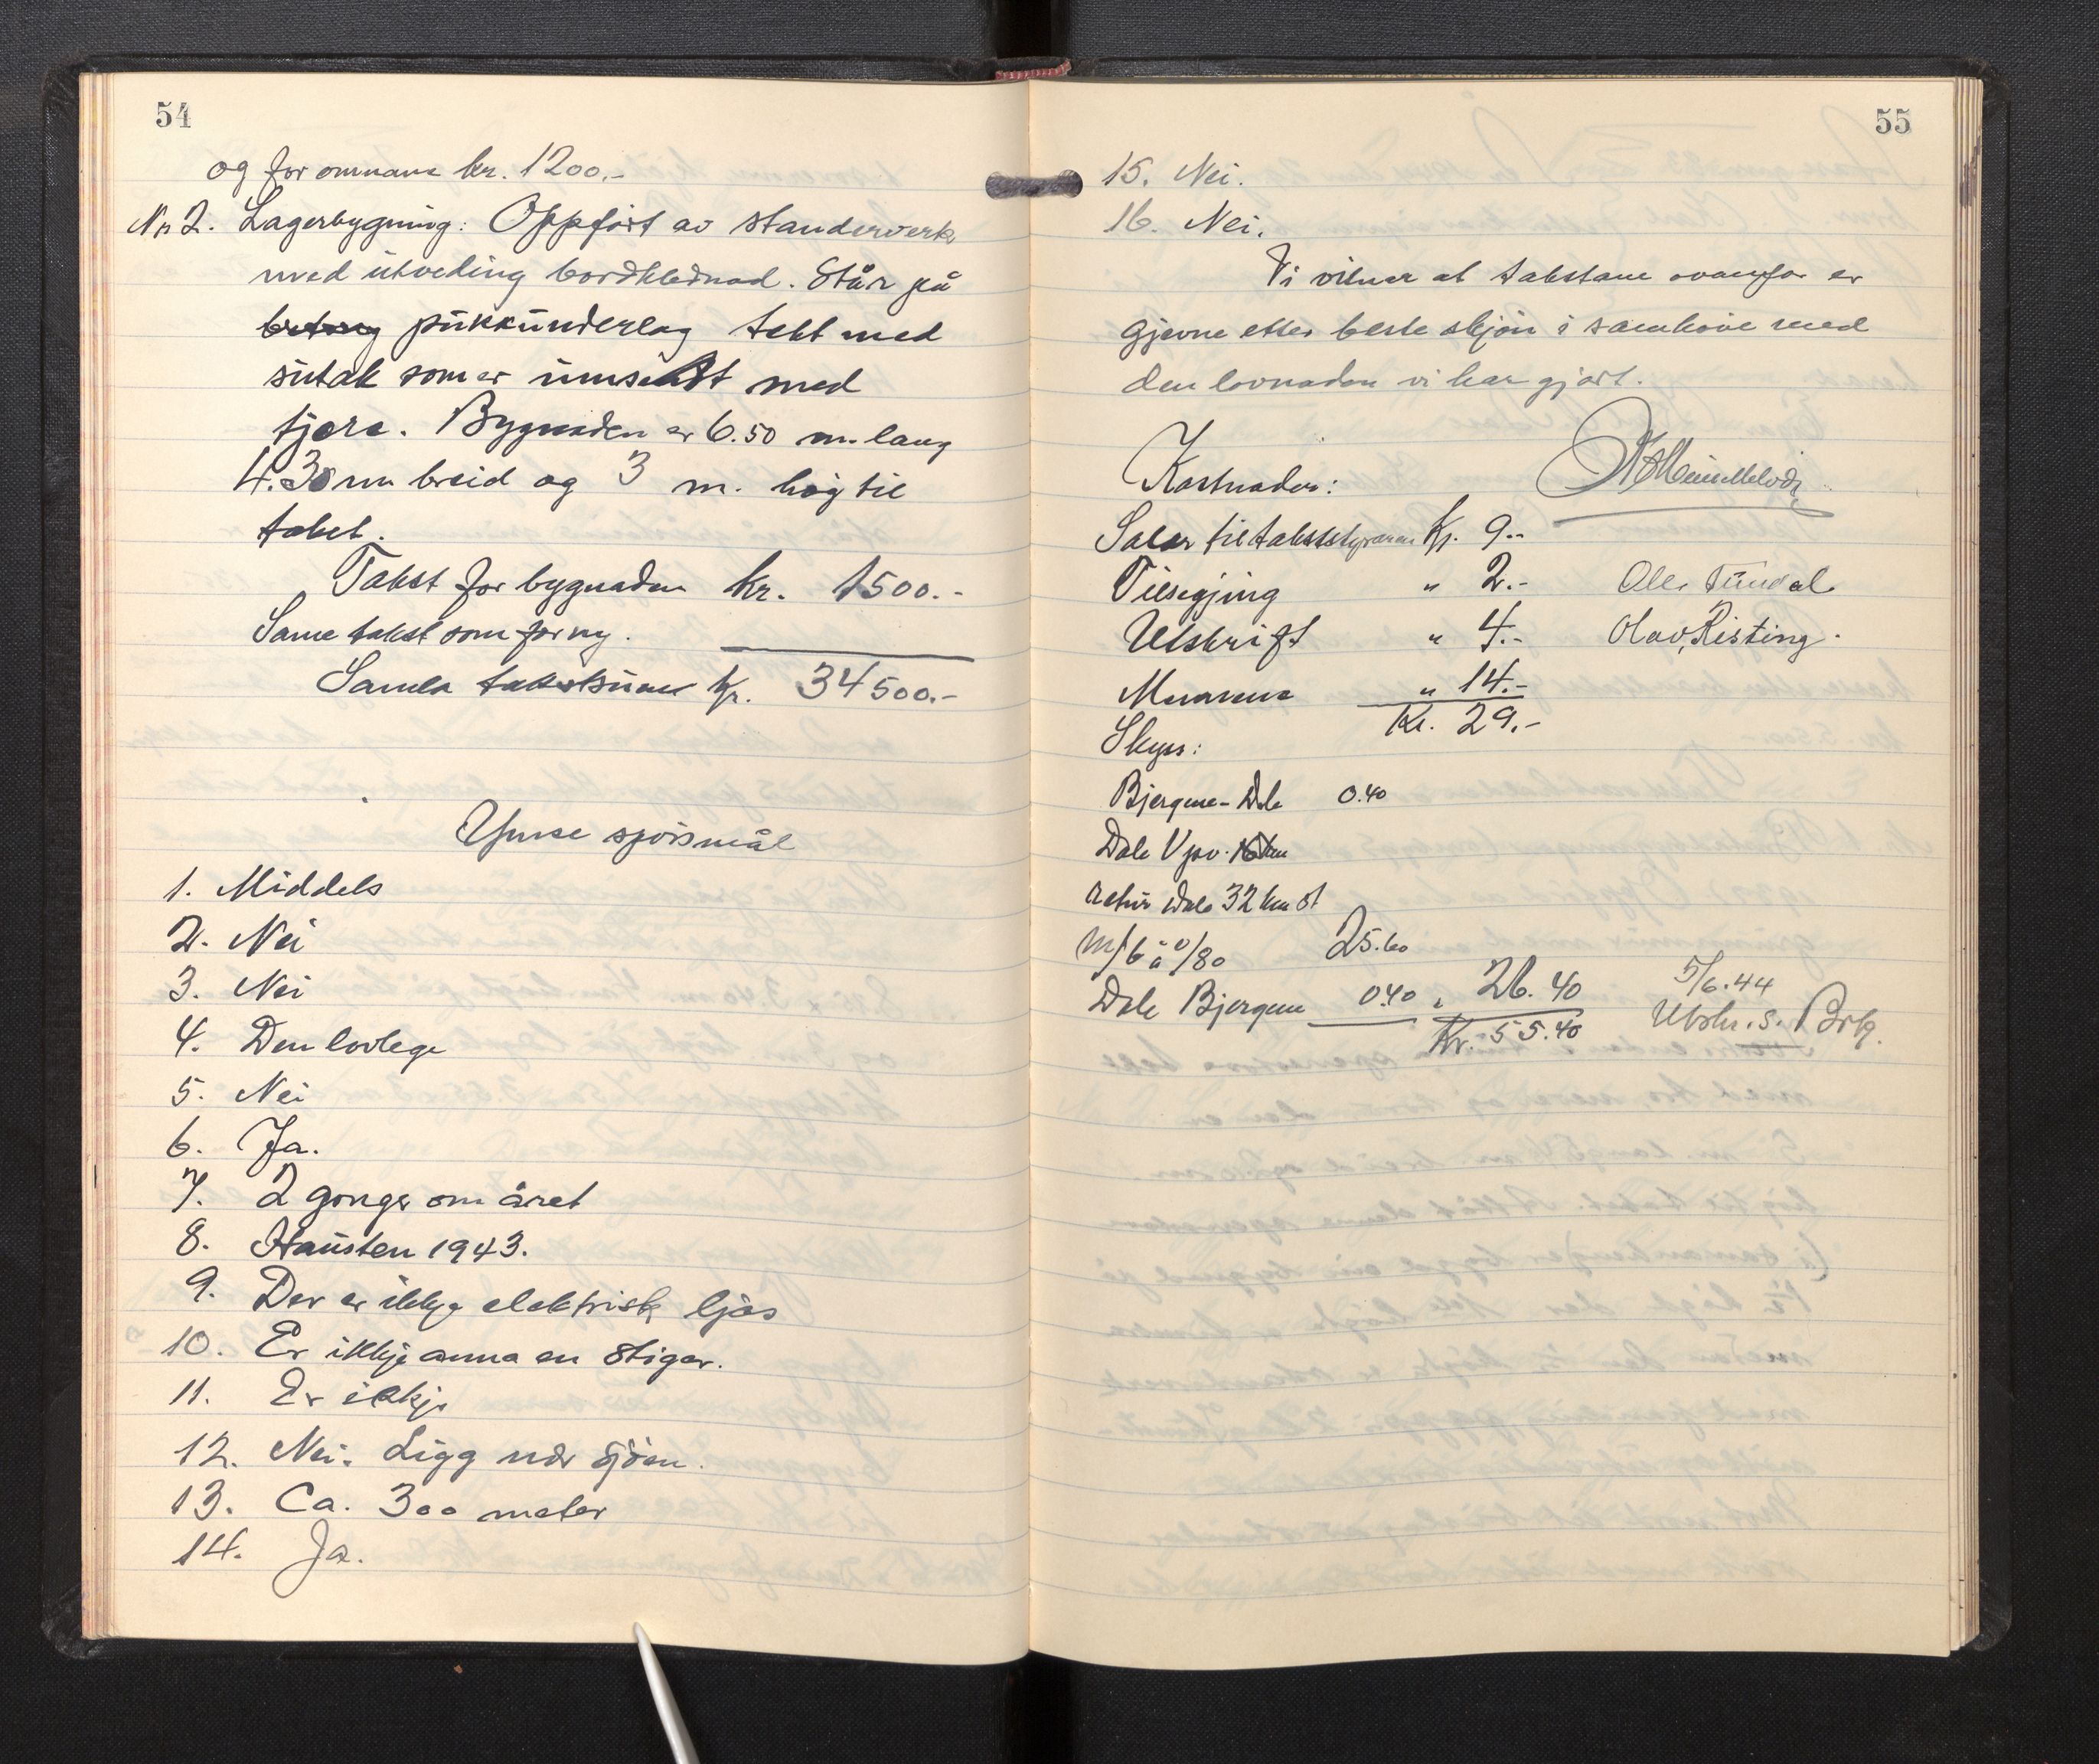 54
og for omnane kr. 1200.-
Nr 2. Lagerbygning: Oppført av standerverk
med utveding bordklednad. Står på
betong pukkunderlag tekt med
sutak som er innsatt med
tjøre. Bygnaden er 6.50 m. lang
4.30 m breid og 3 m. høg til
taket.
Takst for bygnaden kr. 1500.-
Same takst som for ny.
Samla takstsum kr. 34500.-
Ymse spörsmål
1. Middels
2. Nei
3. Nei
4. Den lovlege
5. Nei
6. Ja.
7. 2 gonger om året
8. Hausten 1943.
9. Der er ikkje elektrisk ljos
10. Er ikkje anna en stigar.
11. Er ikkje
12. Nei. Ligg nær sjöen.
13. Ca. 300 meter
14. Ja.
55
15. Nei.
16. Nei.
Vi vitnar at takstane ovanfor er
gjevne etter beste skjön i samhöve med
den lovnaden vi har gjort.
Kostnader:
Salær til takststyraren Kr. 9.-
Tilsegjing " 2.-
Ole Fundal
Utskrift " 4.-
Olav Risting.
" 14.-
Kr. 29.-
Skyss:
Bjergene - Dale 0.40
Dale Vpo. 16 km
retur Dale 32 km
m/6 à 0/80 25.60
Dale Bjergene 0.40 " 26.40
Kr. 55.40
5/6.44
Utskr. s. Brk.